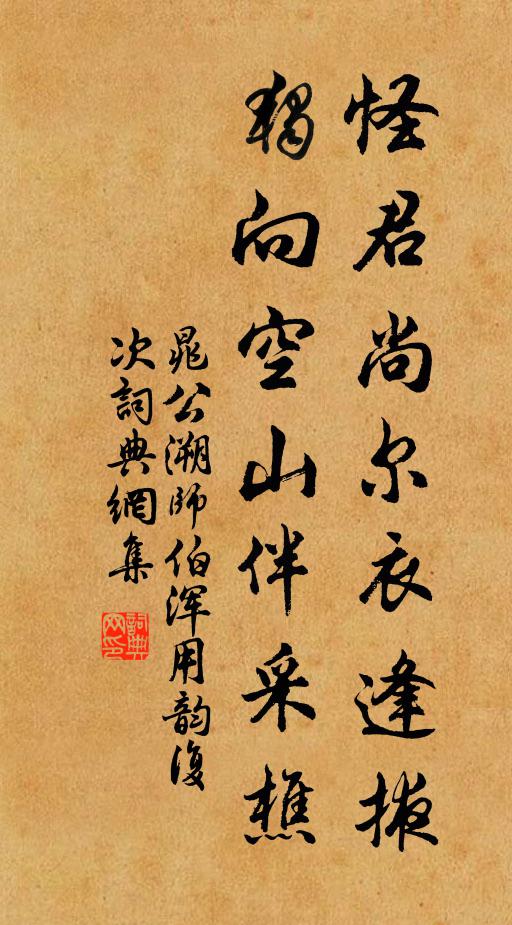 怪君尚尔衣逢掖
独向空山伴采樵
晁公溯師伯浑用韵復
次詞典網集
詞典網印